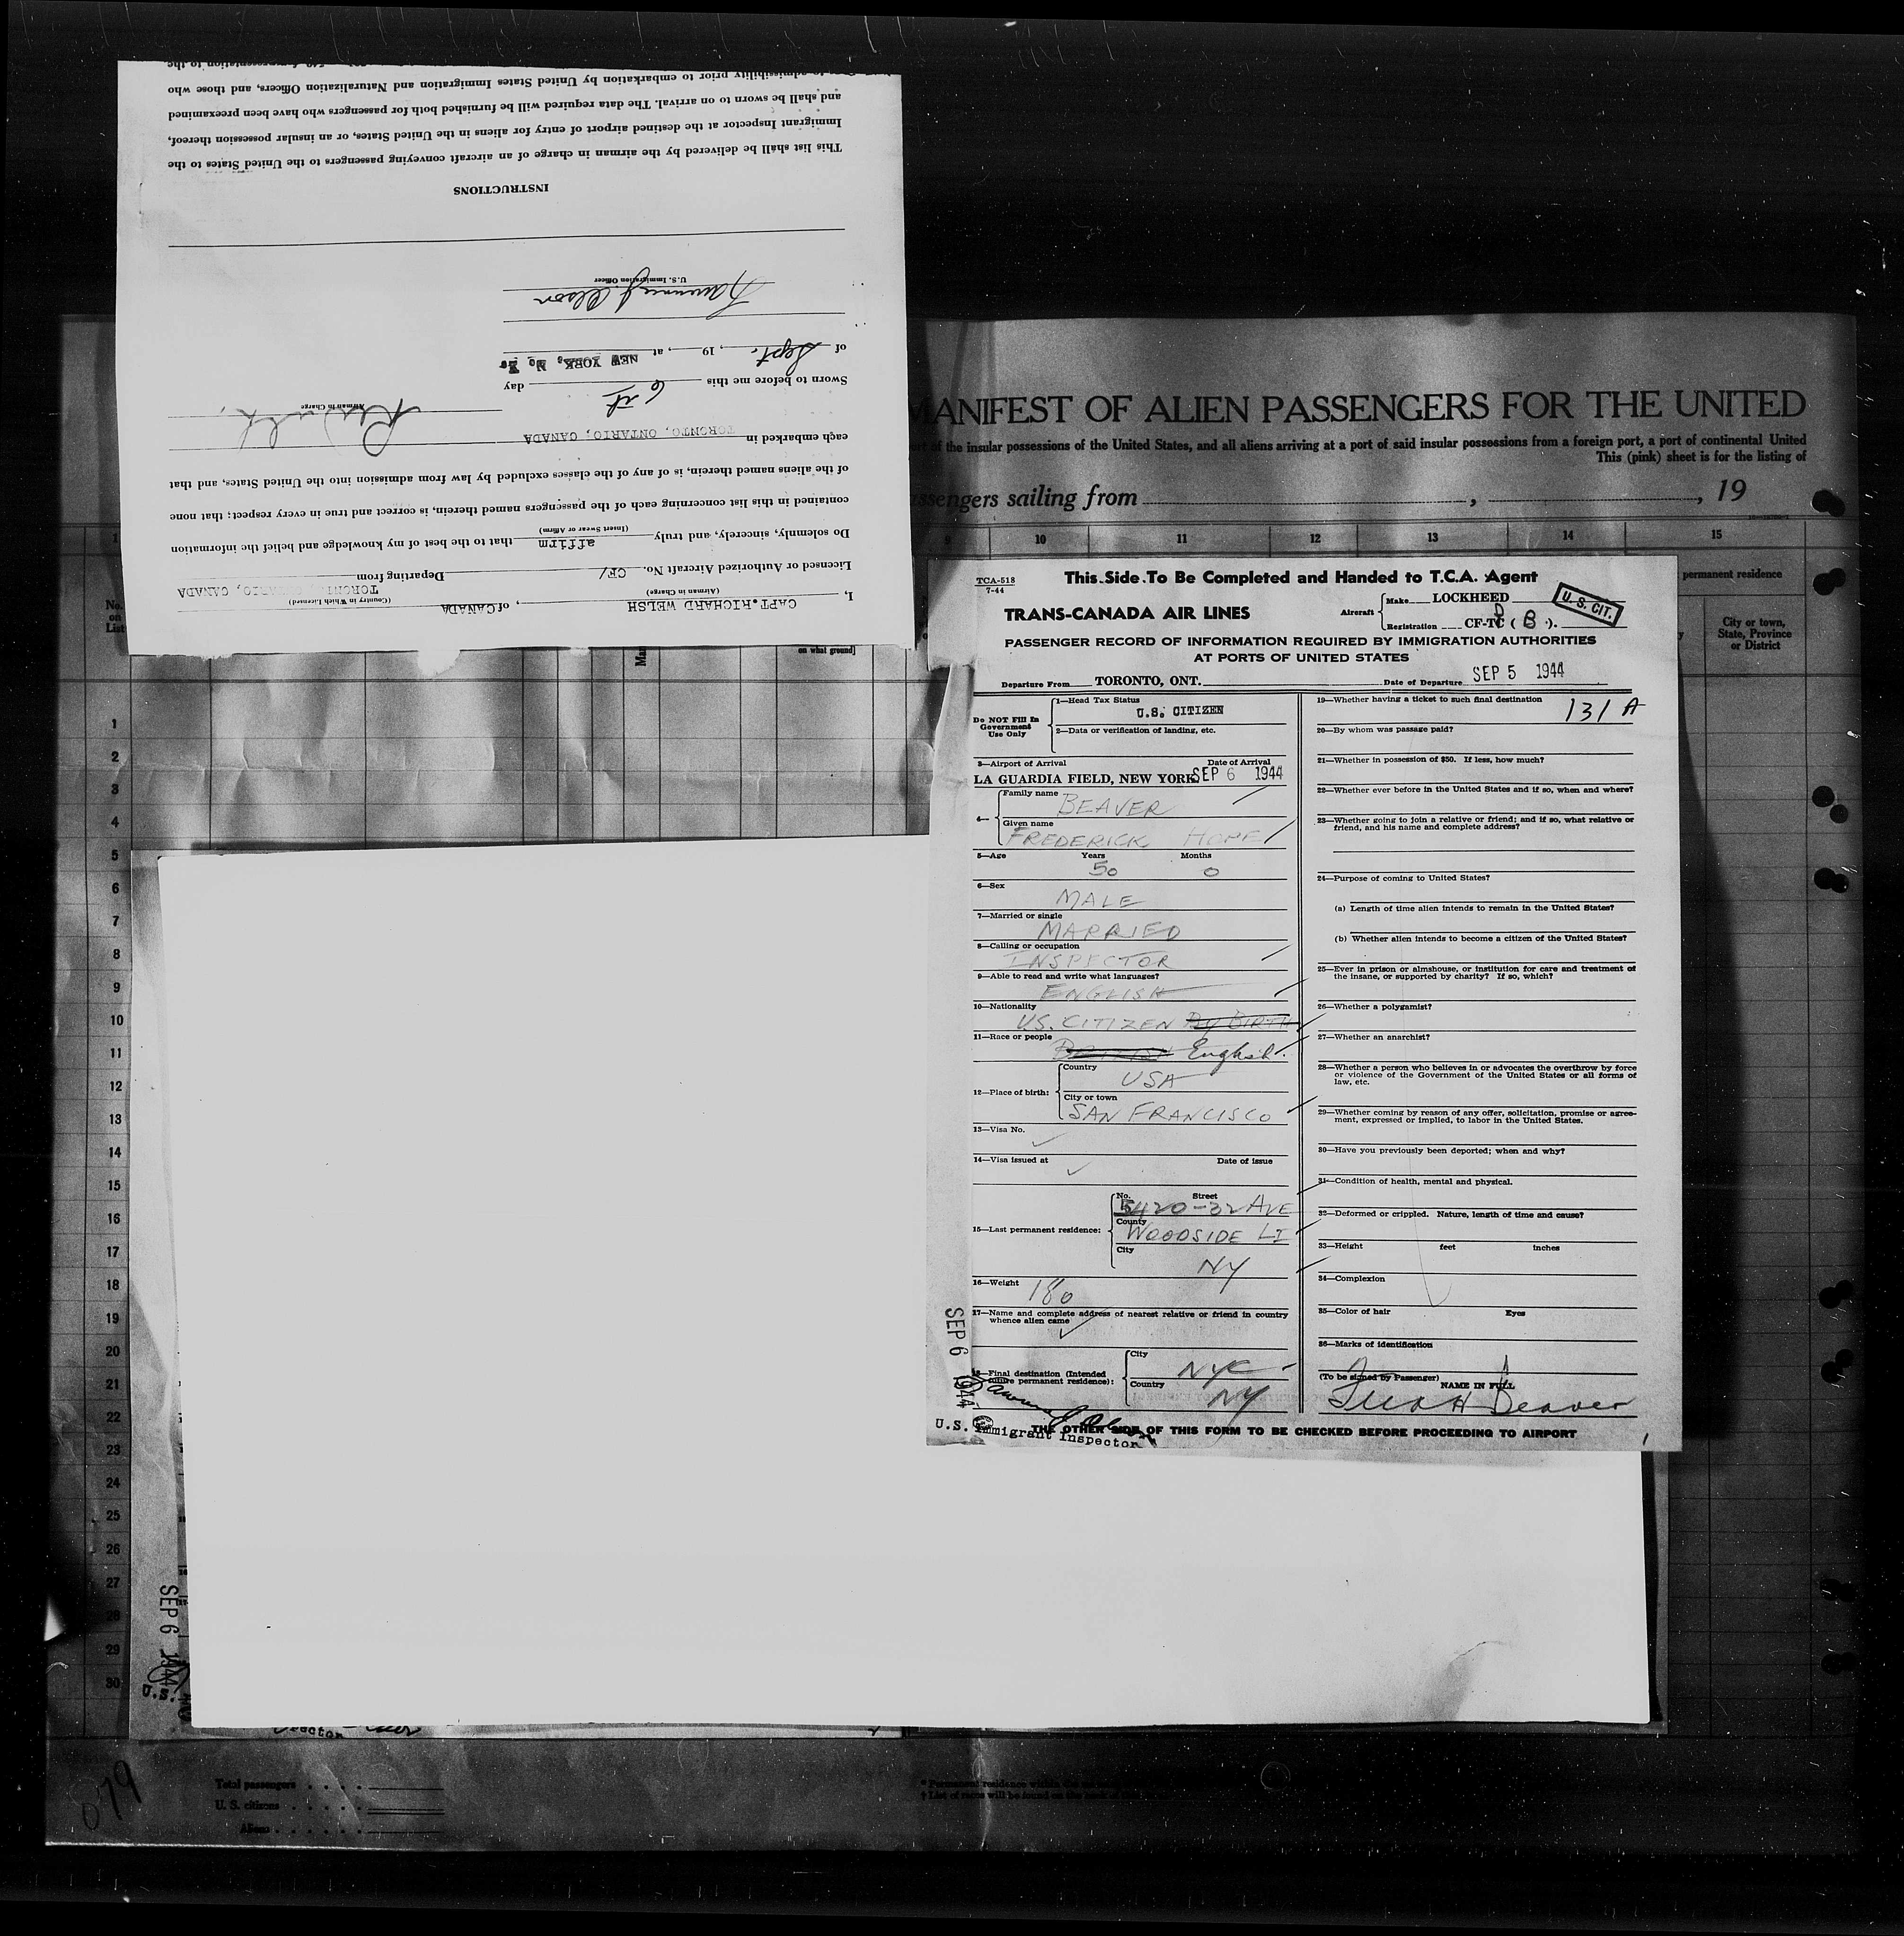 to admissibility prior to embarkation by United States Immigration and Naturalization Officers, and those who
and shall be sworn to on arrival. The data required will be furnished both for passengers who have been preexamined
Immigrant Inspector at the destined airport of entry for aliens in the United States, or an insular possession thereof,
This list shall be delivered by the airman in charge of an aircraft conveying passengers to the United States to the
INSTRUCTIONS
U.S. Immigration Officer
of Sept., 19 , at NEW YORK, N. Y.
Sworn to before me this 6th day
Airman in Charge
each embarked in TORONTO, ONTARIO, CANADA
of the aliens named therein, is of any of the classes excluded by law from admission into the United States, and that
contained in this list concerning each of the passengers named therein, is correct and true in every respect; that none
(Insert Swear or Affirm)
Do solemnly, sincerely, and truly affirm that to the best of my knowledge and belief the information
Licensed or Authorized Aircraft No. CF/ Departing from TORONTO, ONTARIO, CANADA
(Airman in Charge) (Country in Which Licensed)
I, CAPT. RICHARD WELSH, of CANADA
MANIFEST OF ALIEN PASSENGERS FOR THE UNITED
of the insular possessions of the United States, and all aliens arriving at a port of said insular possessions from a foreign port, a port of continental United
This (pink) sheet is for the listing of
passengers sailing from , , 19
10 11 12 13 14 15
permanent residence
City or town,
State, Province
or District
No.
on
List
on what ground]
TCA-518
7-44
This Side To Be Completed and Handed to T.C.A. Agent
TRANS-CANADA AIR LINES
Aircraft Make LOCKHEED
Registration CF-TC ( B ).
U. S. CIT.
PASSENGER RECORD OF INFORMATION REQUIRED BY IMMIGRATION AUTHORITIES
AT PORTS OF UNITED STATES
Departure From TORONTO, ONT. Date of Departure SEP 5 1944
Do NOT Fill In
Government
Use Only
1—Head Tax Status
U.S. CITIZEN
2—Data or verification of landing, etc.
3—Airport of Arrival Date of Arrival
LA GUARDIA FIELD, NEW YORK SEP 6 1944
4— Family name BEAVER
Given name
FREDERICK HOPE
5—Age Years Months
50 0
6—Sex
MALE
7—Married or single
MARRIED
8—Calling or occupation
INSPECTOR
9—Able to read and write what languages?
ENGLISH
10—Nationality
U.S. CITIZEN By BIRTH
11—Race or people
English
12—Place of birth: Country
USA
City or town
SAN FRANCISCO
13—Visa No.
14—Visa issued at Date of issue
15—Last permanent residence: No. Street
5420-32 AVE
County
WOODSIDE LI
City
NY
16—Weight 180
17—Name and complete address of nearest relative or friend in country
whence alien came
18—Final destination (Intended
future permanent residence):
City NYC
Country NY
19—Whether having a ticket to such final destination
131 A
20—By whom was passage paid?
21—Whether in possession of $50. If less, how much?
22—Whether ever before in the United States and if so, when and where?
23—Whether going to join a relative or friend; and if so, what relative or
friend, and his name and complete address?
24—Purpose of coming to United States?
(a) Length of time alien intends to remain in the United States?
(b) Whether alien intends to become a citizen of the United States?
25—Ever in prison or almshouse, or institution for care and treatment of
the insane, or supported by charity? If so, which?
26—Whether a polygamist?
27—Whether an anarchist?
28—Whether a person who believes in or advocates the overthrow by force
or violence of the Government of the United States or all forms of
law, etc.
29—Whether coming by reason of any offer, solicitation, promise or agree-
ment, expressed or implied, to labor in the United States.
30—Have you previously been deported; when and why?
31—Condition of health, mental and physical.
32—Deformed or crippled. Nature, length of time and cause?
33—Height feet inches
34—Complexion
35—Color of hair Eyes
36—Marks of identification
(To be signed by Passenger)
NAME IN FULL
Beaver
SEP 6 1944
U.S. Immigrant Inspector
THE OTHER SIDE OF THIS FORM TO BE CHECKED BEFORE PROCEEDING TO AIRPORT
1
2
3
4
5
6
7
8
9
10
11
12
13
14
15
16
17
18
19
20
21
22
23
24
25
26
27
28
29
30
SEP 6 1944
U.S.
079
Total passengers
U. S. citizens
Aliens